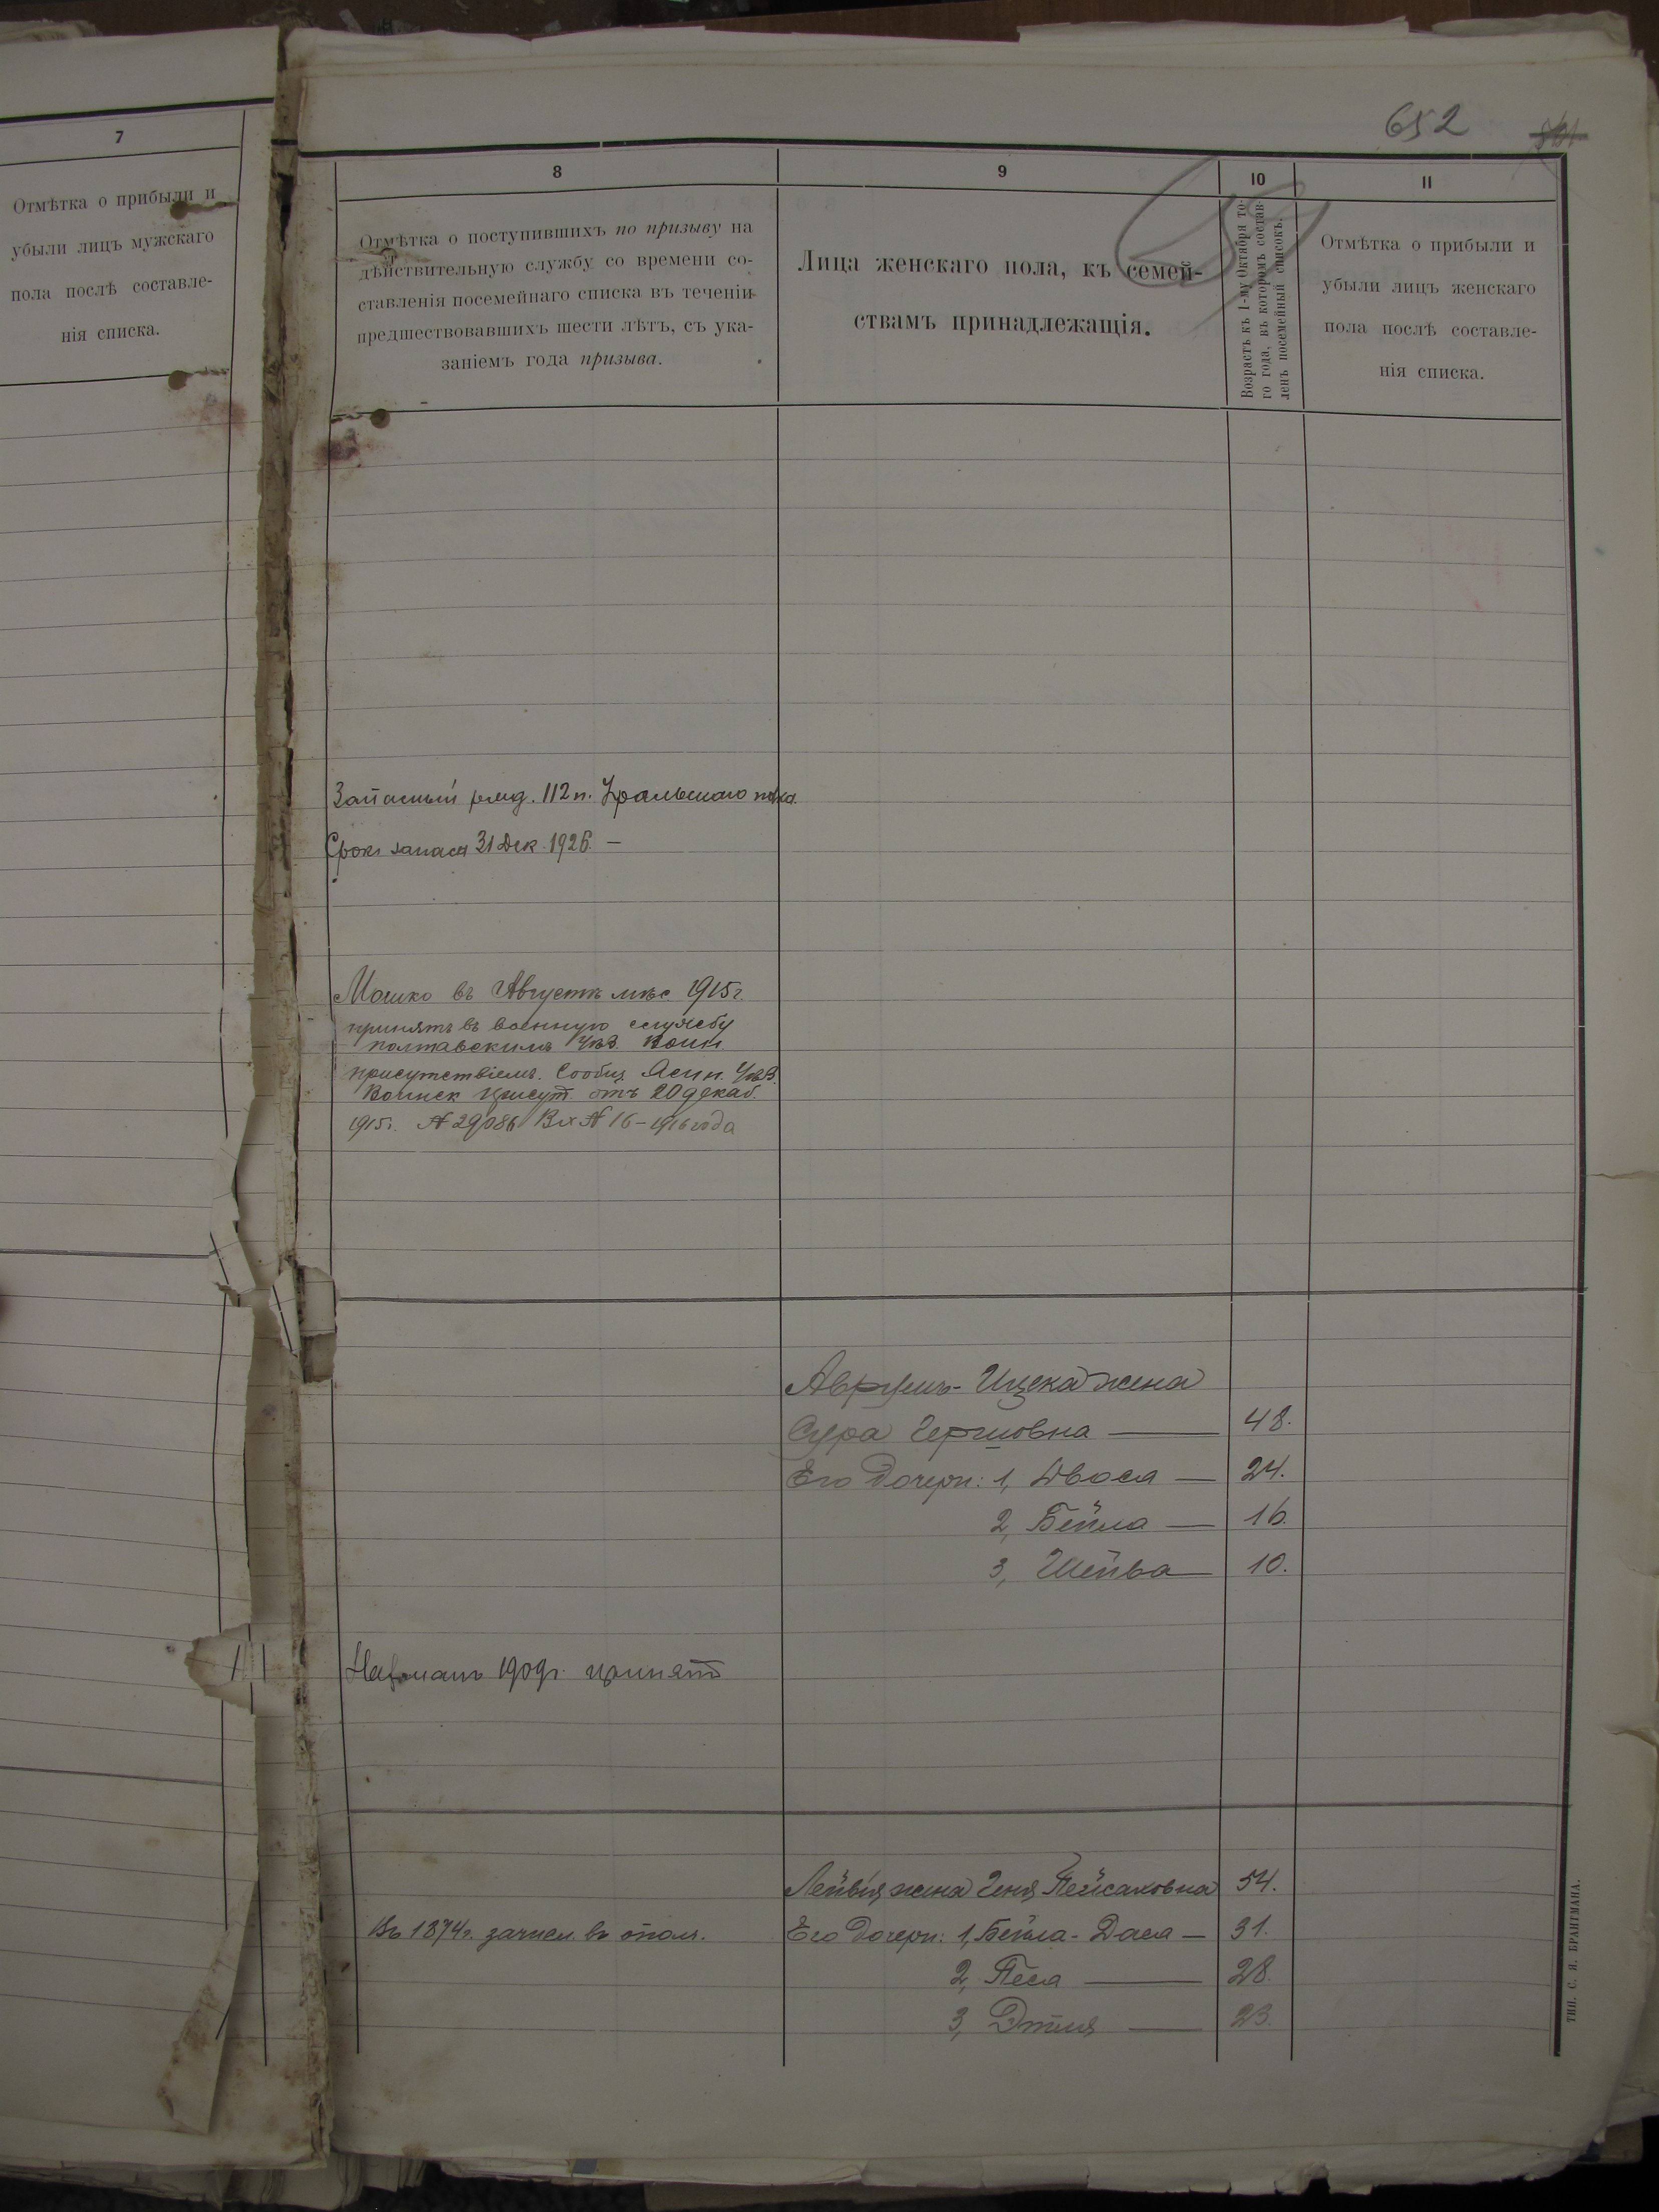 7
Отмѣтка о прибыли и
убыли лицъ мужскаго
пола послѣ составле-
нія списка.
652
8
9
10
11
Отмѣтка о поступившихъ по призыву на
дѣйствительную службу со времени со-
ставленія посемейнаго списка въ теченіи
предшествовавшихъ шести лѣтъ, съ ука-
заніемъ года призыва.
Лица женскаго пола, къ семей-
ствамъ принадлежащія.
Возрастъ къ 1-му Октября то-
го года, въ которомъ состав-
ленъ посемейный списокъ.
Отмѣтка о прибыли и
убыли лицъ женскаго
пола послѣ составле-
нія списка.
Запасный ряд. 112 п. Уральскаго полка.
Срокъ запаса 31 Дек. 1926. —
Мошко въ Августѣ мѣс. 1915 г.
принятъ въ военную службу
полтавскимъ Уѣз. Воин.
присутствіемъ. Сообщ. Ясин. Уѣз.
Воинск присут. отъ 20 декаб.
1915 г. № 29086 Вх № 16 – 1916 года
Аврумъ-Ицека жена
Сура Гершовна — 48.
Его дочери: 1, Двося — 24.
2, Бейла — 16.
3, Шейва — 10.
1909 г. принятъ
Лейвія жена Геня Пейсаховна 54.
Въ 1874 г. зачисл. въ опол.
Его дочери: 1, Бейла-Дася — 31.
2, Песя — 28.
3, Этля — 23.
ТИП. С. Я. БРАНТМАНА.